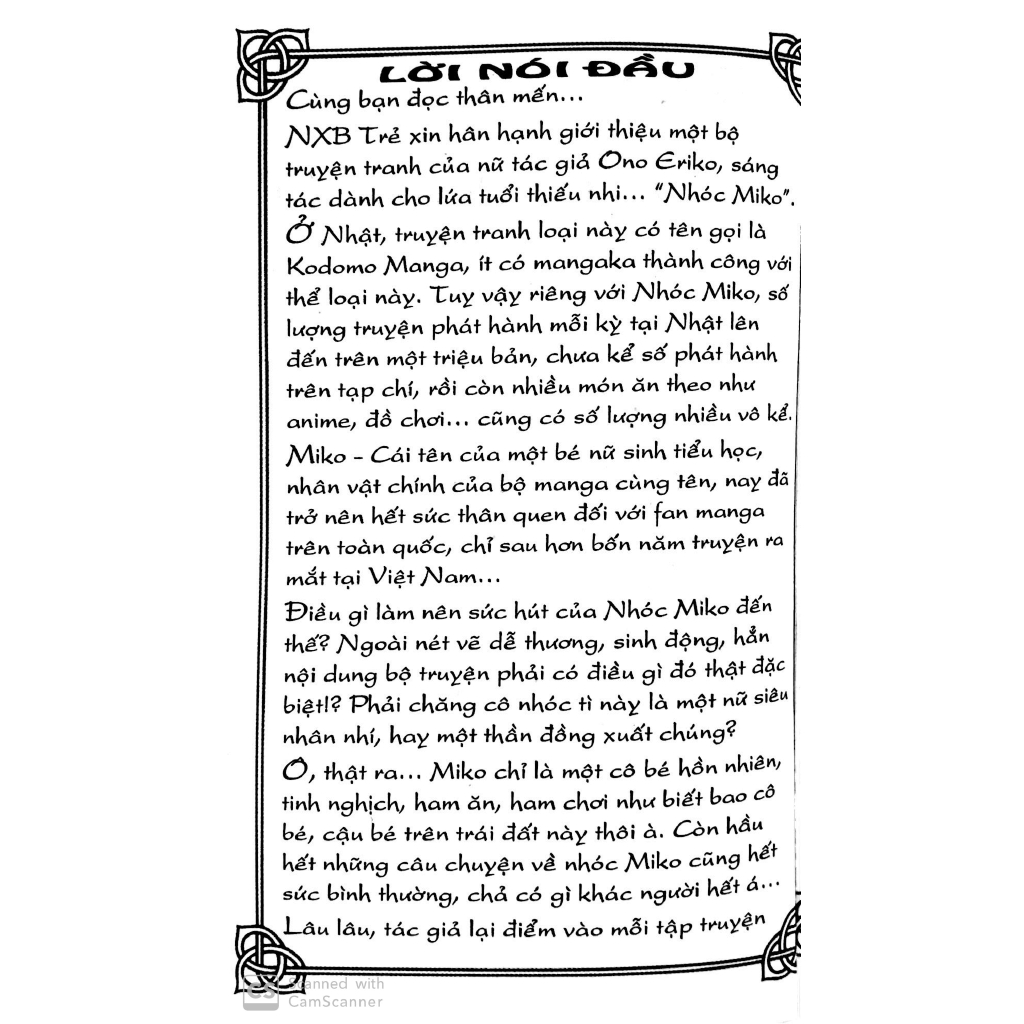 LỜI NÓI ĐẦU
Cùng bạn đọc thân mến...
NXB Trẻ xin hân hạnh giới thiệu một bộ
truyện tranh của nữ tác giả Ono Eriko, sáng
tác dành cho lứa tuổi thiếu nhi... "Nhóc Miko".
Ở Nhật, truyện tranh loại này có tên gọi là
Kodomo Manga, ít có mangaka thành công với
thể loại này. Tuy vậy riêng với Nhóc Miko, số
lượng truyện phát hành mỗi kỳ tại Nhật lên
đến trên một triệu bản, chưa kể số phát hành
trên tạp chí, rồi còn nhiều món ăn theo như
anime, đồ chơi... cũng có số lượng nhiều vô kể.
Miko - Cái tên của một bé nữ sinh tiểu học,
nhân vật chính của bộ manga cùng tên, nay đã
trở nên hết sức thân quen đối với fan manga
trên toàn quốc, chỉ sau hơn bốn năm truyện ra
mắt tại Việt Nam...
Điều gì làm nên sức hút của Nhóc Miko đến
thế? Ngoài nét vẽ dễ thương, sinh động, hẳn
nội dung bộ truyện phải có điều gì đó thật đặc
biệt!? Phải chăng cô nhóc tì này là một nữ siêu
nhân nhí, hay một thần đồng xuất chúng?
Ô, thật ra... Miko chỉ là một cô bé hồn nhiên,
tinh nghịch, ham ăn, ham chơi như biết bao cô
bé, cậu bé trên trái đất này thôi à. Còn hầu
hết những câu chuyện về nhóc Miko cũng hết
sức bình thường, chả có gì khác người hết á...
Lâu lâu, tác giả lại điểm vào mỗi tập truyện
CS Scanned with
CamScanner